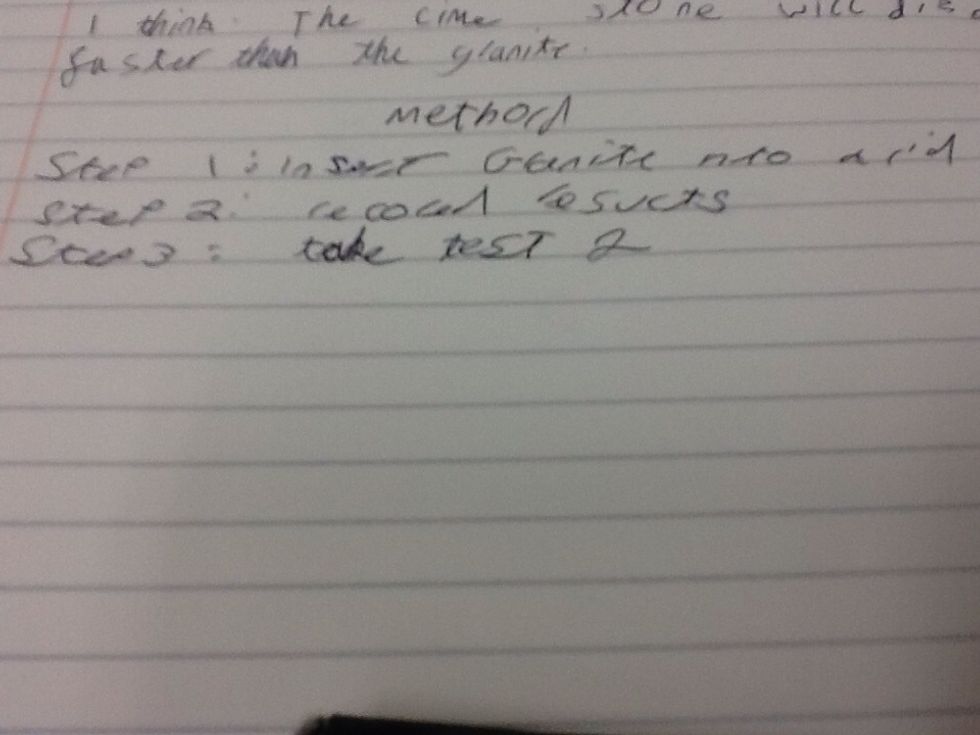 I think The lime stone will dis
faster than the granite.
Method
Step 1: insert Granite into acid
Step 2: record results
Step 3: take test 2